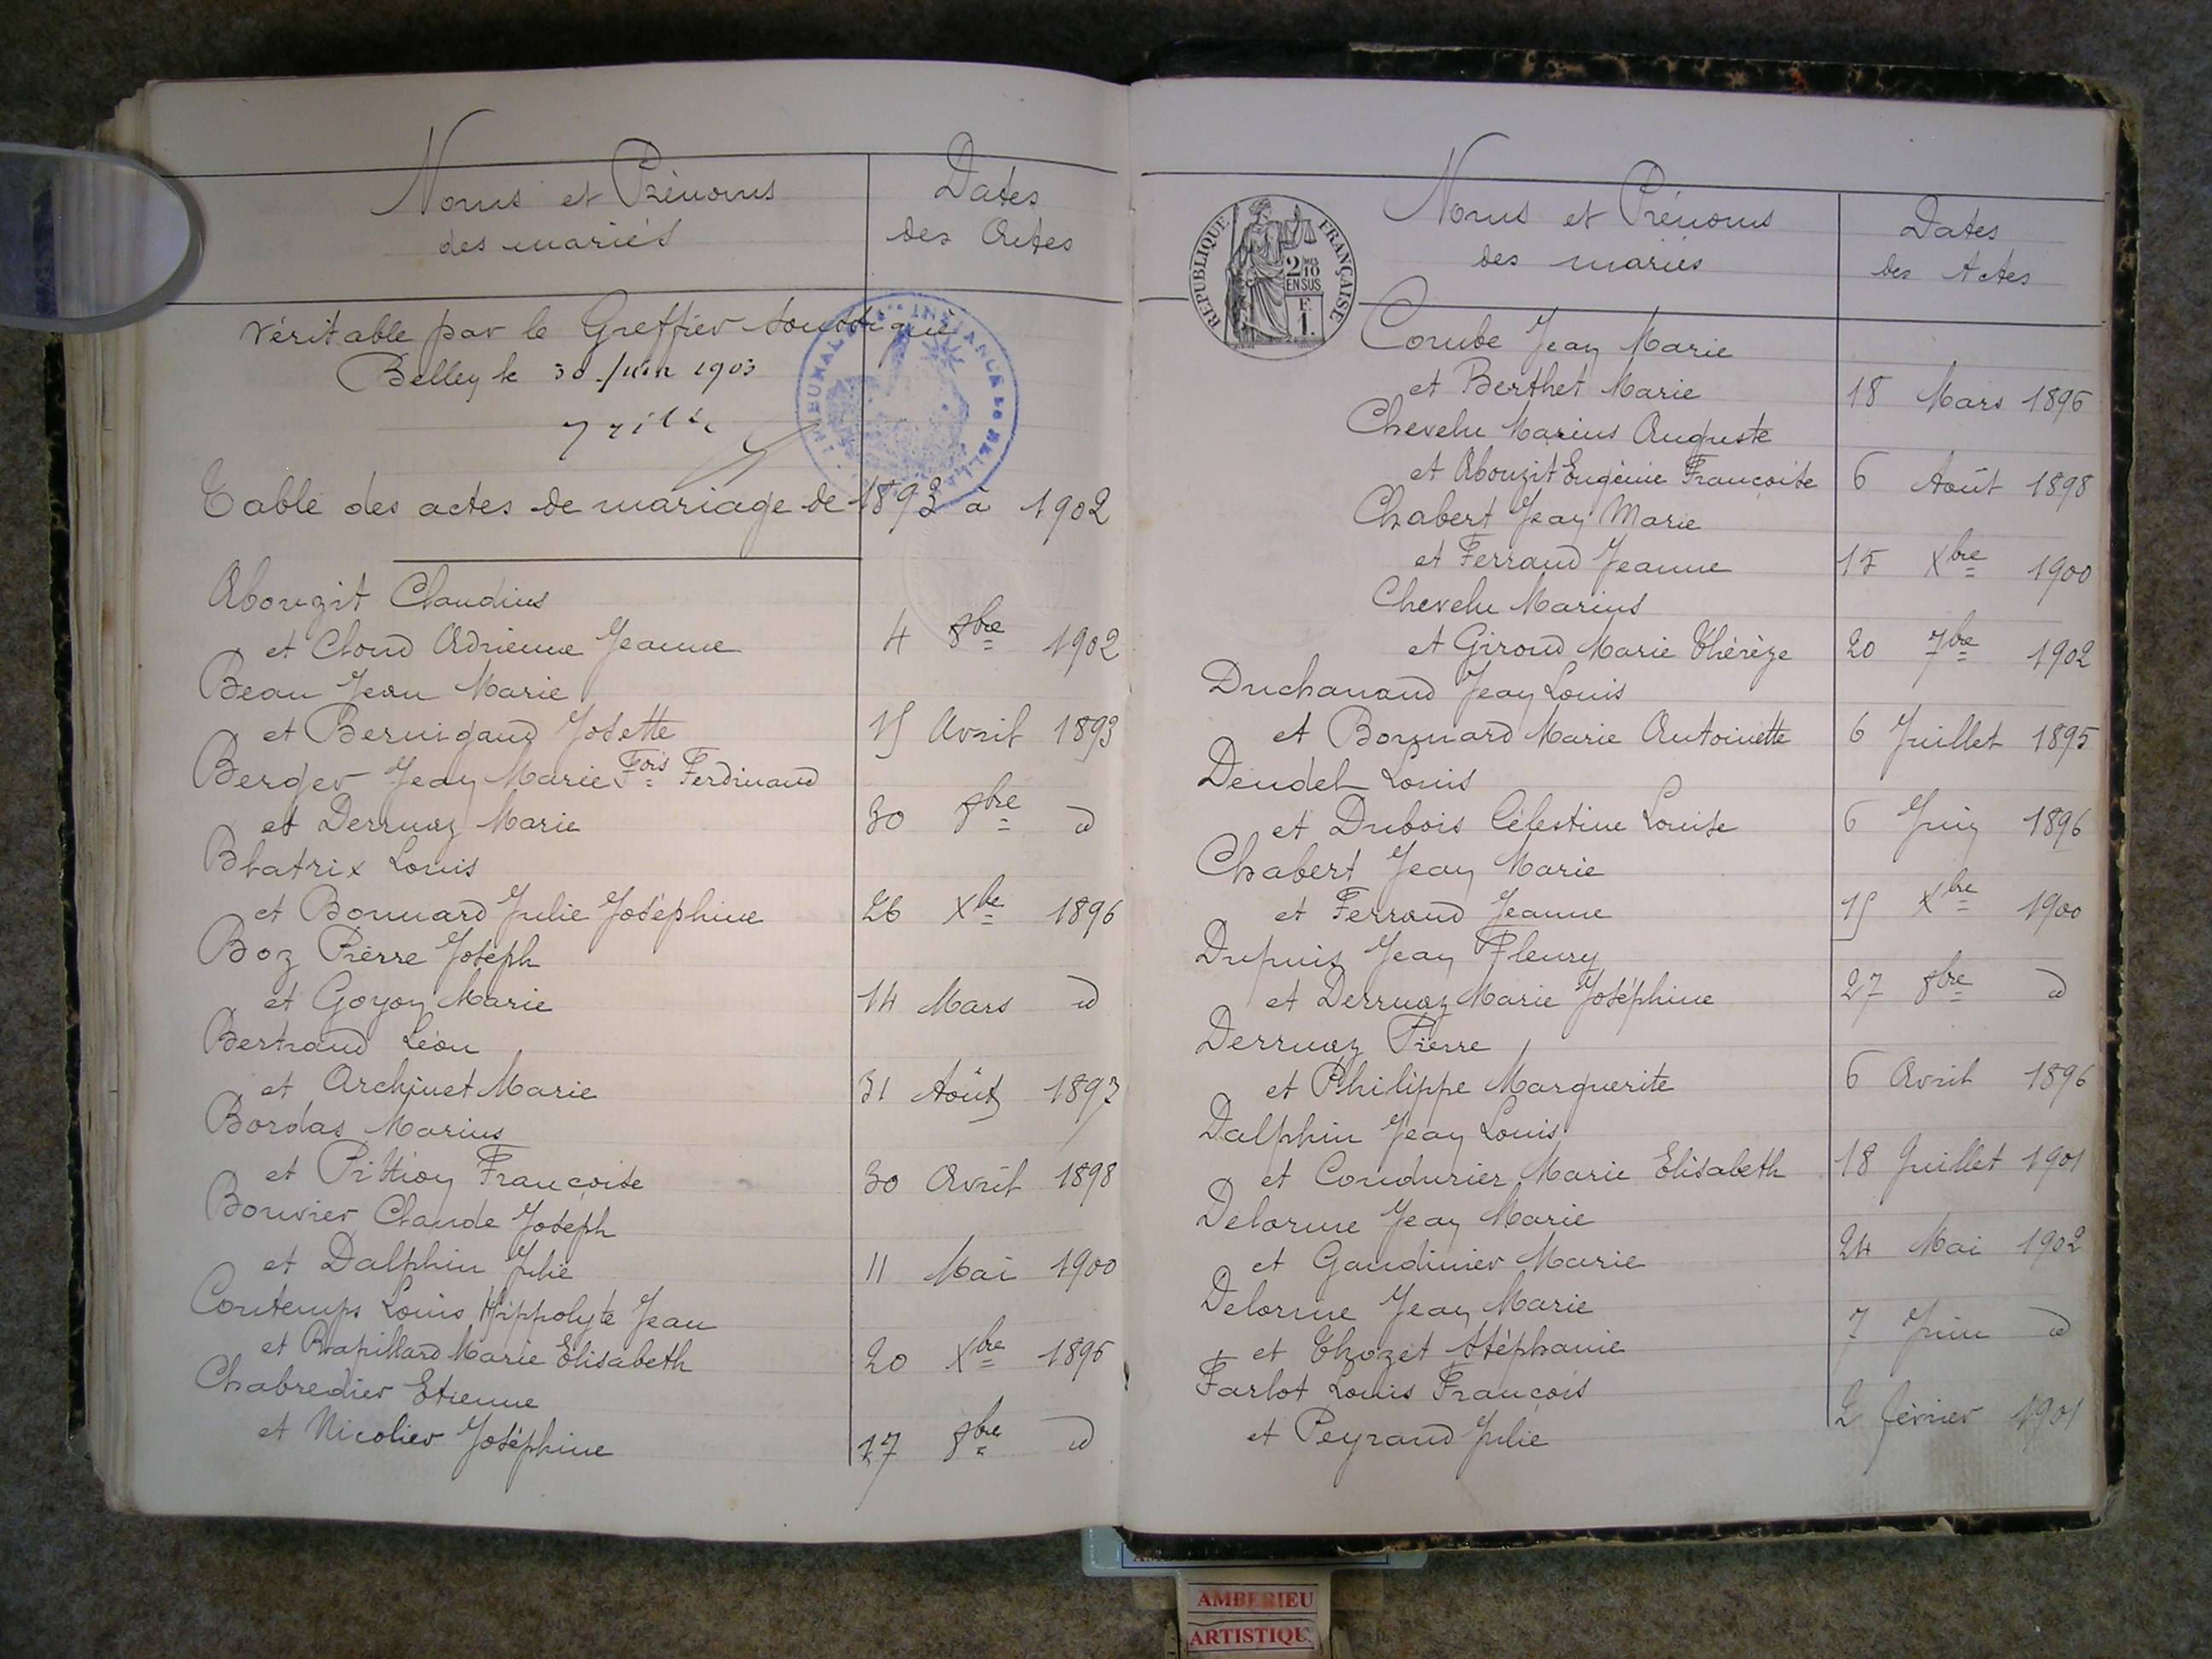 Noms et Prénoms
des mariés
Dates
des Actes
Véritable par le Greffier soussigné
Belley le 30 Juin 1903
Table des actes de mariage de 1893 à 1902
Abouzit Claudius
et Cloud Adrienne Jeanne 4 8bre 1902
Beau Jean Marie
et Bernigaud Josette 15 Avril 1893
Berger Jean Marie Fois Ferdinand
et Derruaz Marie 30 8bre d
Blatrix Louis
et Bonnard Julie Joséphine 26 Xbre 1896
Boz Pierre Joseph
et Goyon Marie 14 Mars d
Bertrand Léon
et Archinet Marie 31 Août 1897
Bordas Marius
et Pittion Françoise 30 Avril 1898
Bouvier Claude Joseph
et Dalphin Julie 11 Mai 1900
Contemps Louis Hippolyte Jean
et Rapillard Marie Elisabeth 20 Xbre 1895
Chabredier Etienne
et Nicolier Joséphine 17 8bre d
REPUBLIQUE FRANÇAISE
2/10 EN SUS
F. 1.
Noms et Prénoms
des mariés
Dates
des Actes
Combe Jean Marie
et Berthet Marie 18 Mars 1896
Chevelu Marius Auguste
et Abouzit Eugénie Françoise 6 Août 1898
Chabert Jean Marie
et Ferrand Jeanne 15 Xbre 1900
Chevelu Marius
et Giroud Marie Thérèze 20 7bre 1902
Duchanaud Jean Louis
et Bonnard Marie Antoinette 6 Juillet 1895
Deudel Louis
et Dubois Célestine Louise 6 Juin 1896
Chabert Jean Marie
et Ferrand Jeanne 15 Xbre 1900
Dupuis Jean Fleury
et Derruaz Marie Joséphine 27 8bre d
Derruaz Pierre
et Philippe Marguerite 6 Avril 1896
Dalphin Jean Louis
et Condurier Marie Elisabeth 18 Juillet 1901
Delorme Jean Marie
et Gaudinier Marie 24 Mai 1902
Delorme Jean Marie
et Thozet Stéphanie 7 Juin d
Farlot Louis François
et Peyraud Julie 2 février 1901
AMBERIEU
ARTISTIQU